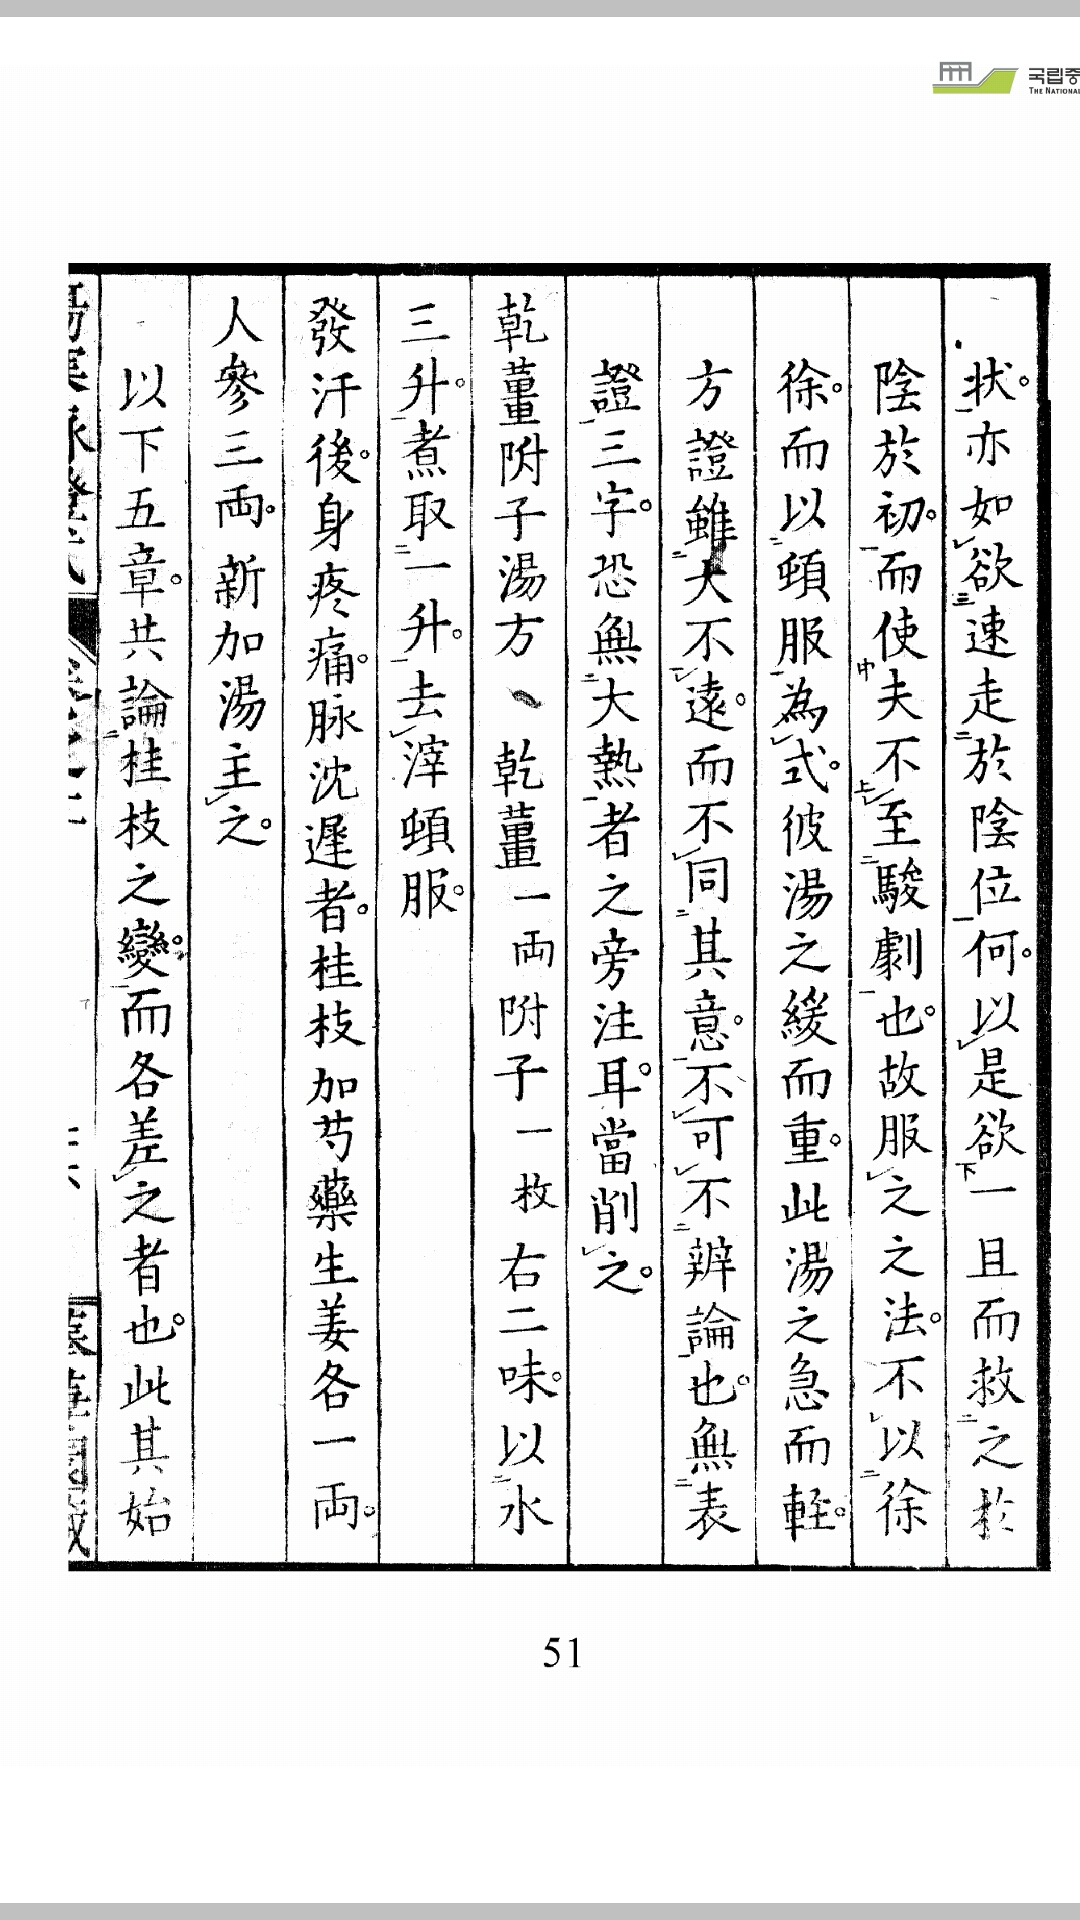 국립중
THE NATIONAL
状亦如欲速走於陰位何以是欲一且而救之於
陰於初而使夫不至駿劇也故服之之法不以徐
徐而以頓服為式彼湯之緩而重此湯之急而軽
方證雖大不遠而不同其意不可不辨論也無表
證三字恐無大熱者之旁注耳當削之
乾薑附子湯方 乾薑一両附子一枚右二味以水
三升煮取一升去滓頓服
發汗後身疼痛脉沈遲者桂枝加芍藥生姜各一両
人參三両新加湯主之
以下五章共論桂枝之變而各差之者也此其始
51